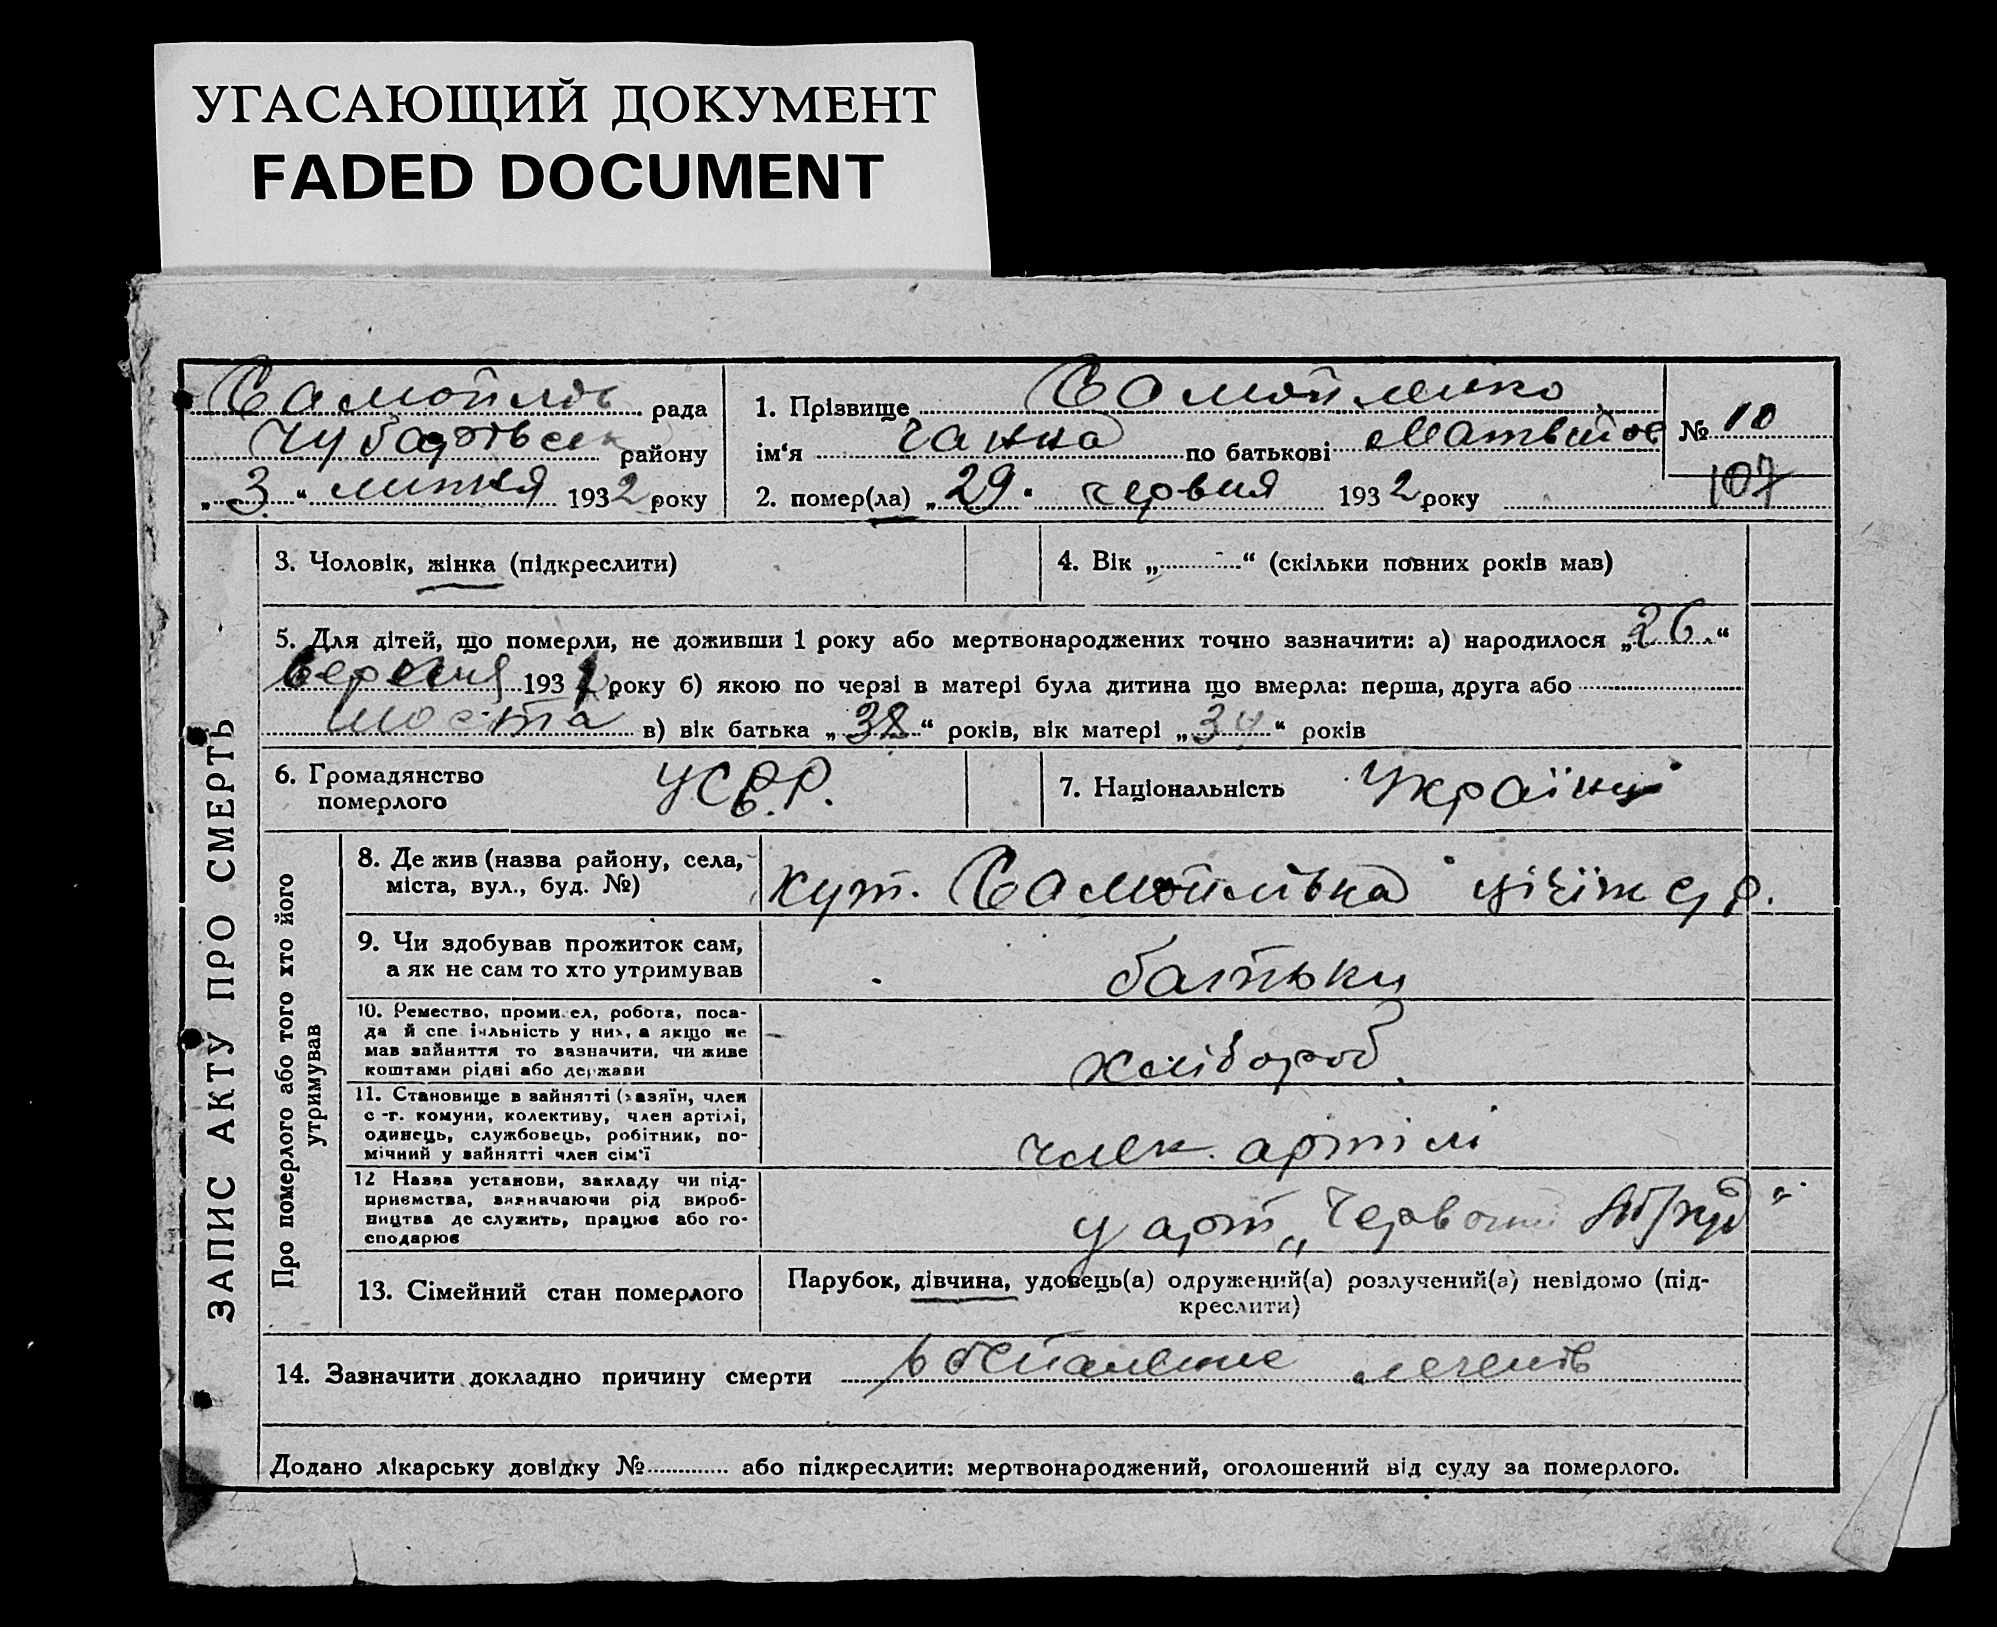 УГАСАЮЩИЙ ДОКУМЕНТ
FADED DOCUMENT
Самойлів рада
Чубарівськ району
„3“ липня 1932 року
1. Прізвище Самойленко
ім‘я Ганна по батькові Матвійов
2. помер(ла) „29“ червня 1932 року
№ 10
107
ЗАПИС АКТУ ПРО СМЕРТЬ
3. Чоловік, жінка (підкреслити)
4. Вік „-“ (скільки повних років мав)
5. Для дітей, що померли, не доживши 1 року або мертвонароджених точно зазначити: а) народилося „26“
вересня 1931 року б) якою по черзі в матері була дитина що вмерла: перша, друга або
шоста в) вік батька „38“ років, вік матері „34“ років
6. Громадянство
померлого
УСРР.
7. Національність Українці
Про померлого або того хто його
утримував
8. Де жив (назва району, села,
міста, вул., буд. №)
хут. Самойлівка цієїж с/р.
9. Чи здобував прожиток сам,
а як не сам то хто утримував
батьки
10. Ремество, промисел, робота, поса-
да й спеціяльність у них, а якщо не
мав зайняття то зазначити, чи живе
коштами рідні або держави
хлібороб.
11. Становище в зайнятті (хазяїн, член
с.-г. комуни, колективу, член артілі,
одинець, службовець, робітник, по-
мічний у зайнятті член сім‘ї
член артілі
12 Назва установи, закладу чи під-
приємства, визначаючи рід вироб-
ництва де служить, працює або го-
сподарює
у арт „Червоний
13. Сімейний стан померлого
Парубок, дівчина, удовець(а) одружений(а) розлучений(а) невідомо (під-
креслити)
14. Зазначити докладно причину смерти легенів
Додано лікарську довідку № або підкреслити: мертвонароджений, оголошений від суду за померлого.